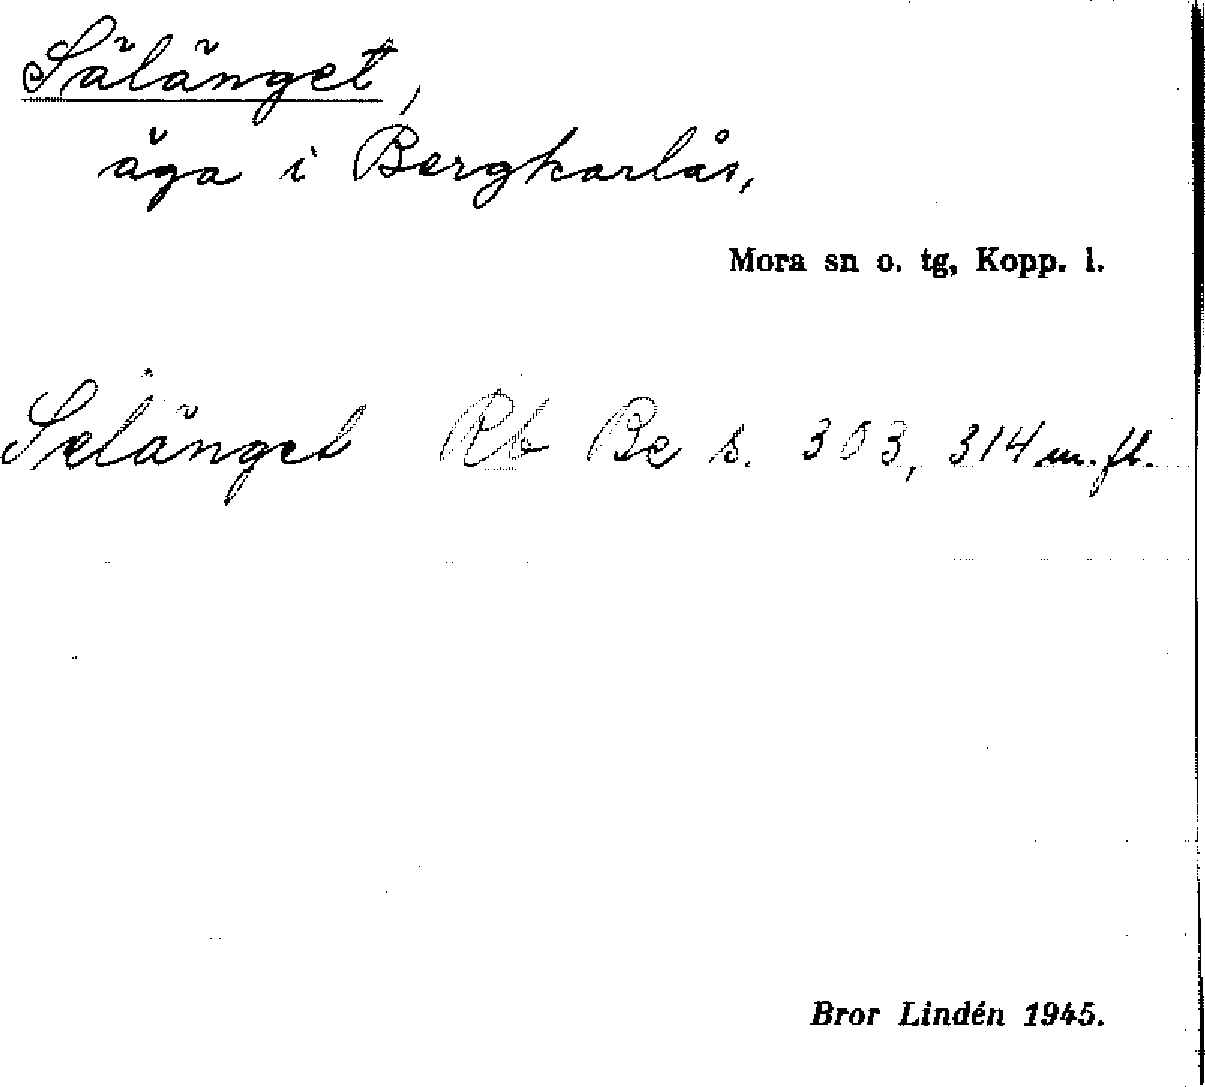 Sälänget,
äga i Bergkarlås,
Mora sn o. tg, Kopp. l.
Selänget Rb Be s. 303, 314 m. fl.
Bror Lindén 1945.